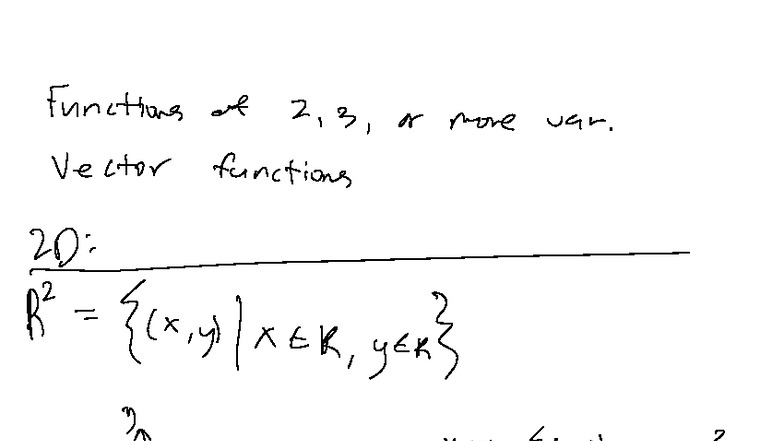 Functions of 2, 3, or more var.
Vector functions
2D:
R² = {(x,y) | x ∈ R, y ∈ R}